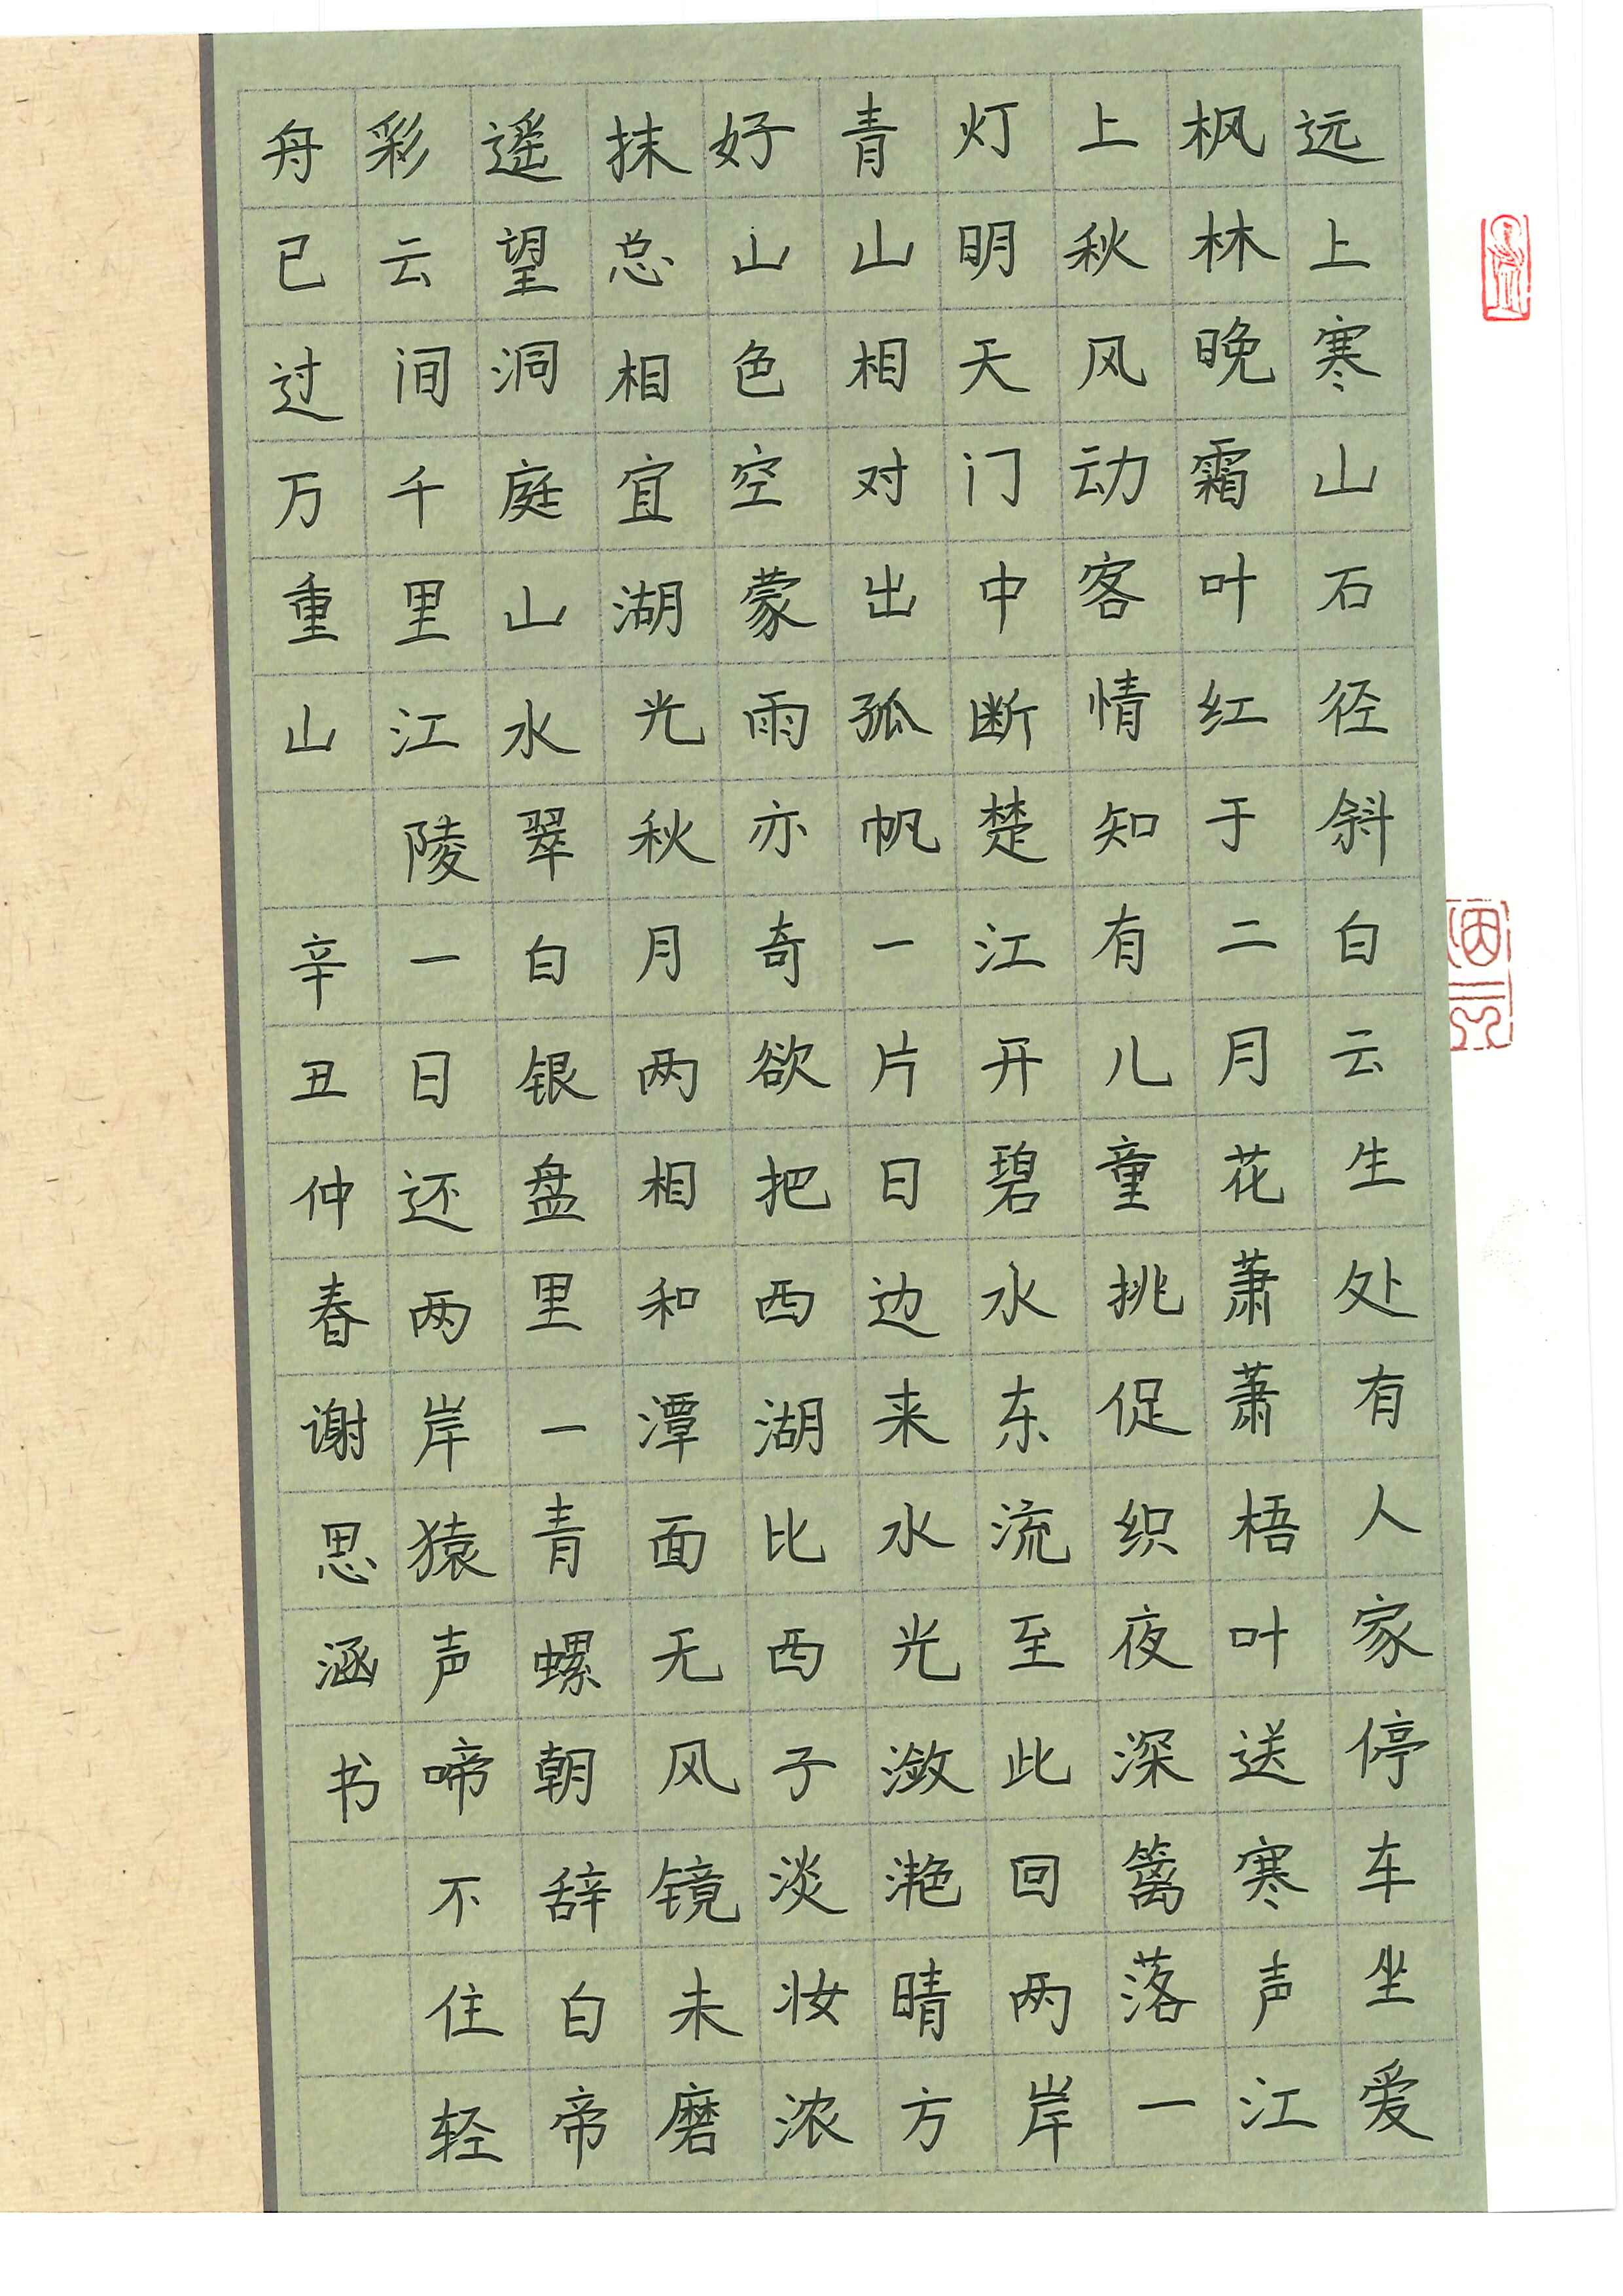 远上寒山石径斜白云生处有人家停车坐爱
枫林晚霜叶红于二月花萧萧梧叶送寒声江
上秋风动客情知有儿童挑促织夜深篱落一
灯明天门中断楚江开碧水东流至此回两岸
青山相对出孤帆一片日边来水光潋滟晴方
好山色空蒙雨亦奇欲把西湖比西子淡妆浓
抹总相宜湖光秋月两相和潭面无风镜未磨
遥望洞庭山水翠白银盘里一青螺朝辞白帝
彩云间千里江陵一日还两岸猿声啼不住轻
舟已过万重山 辛丑仲春谢思涵书